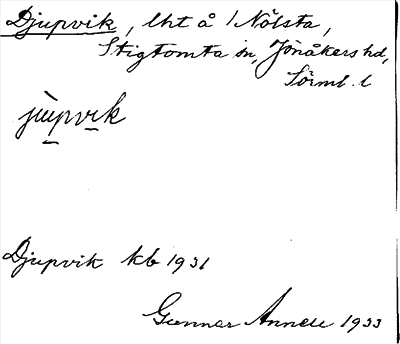 Djupvik, lht å 1 Nölsta,
Stigtomta sn, Jönåkers hd,
Sörml. l
jùpvik
Djupvik kb 1931
Gunnar Annell 1933